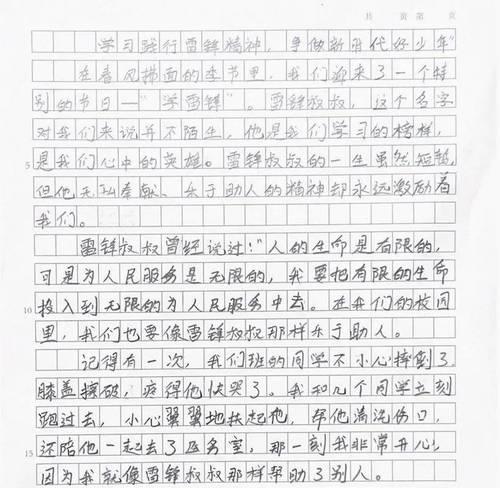 共 页 第 页
学习践行雷锋精神，争做新时代好少年"
在春风拂面的季节里，我们迎来了一个特
别的节日—"学雷锋"。雷锋叔叔，这个名字
对我们来说并不陌生，他是我们学习的榜样，
5 是我们心中的英雄。雷锋叔叔的一生虽然短暂，
但他无私奉献、乐于助人的精神却永远激励着
我们。
雷锋叔叔曾经说过："人的生命是有限的，
可是为人民服务是无限的，我要把有限的生命
10 投入到无限的为人民服务中去。在我们的校园
里，我们也要像雷锋叔叔那样乐于助人。
记得有一次，我们班的同学不小心摔倒了，
膝盖擦破，疼得他快哭了。我和几个同学立刻
跑过去，小心翼翼地扶起他，帮他清洗伤口，
15 还陪他一起去了医务室，那一刻我非常开心，
因为我就像雷锋叔叔那样帮助了别人。